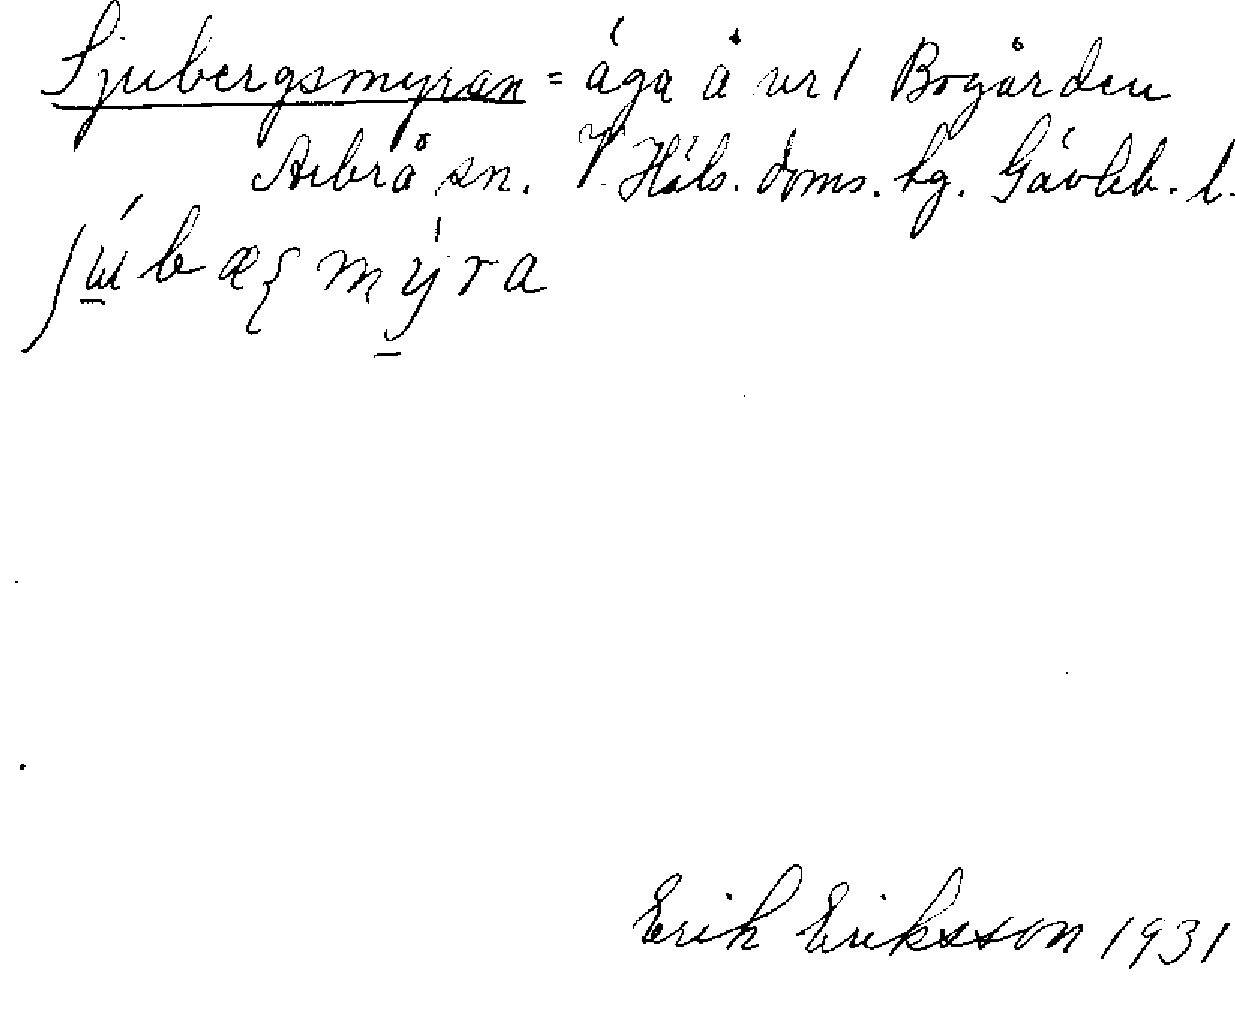 Sjubergsmyran = äga å nr 1 Bogården
Arbrå sn. V. Häls. doms. hg. Gävleb. l.
Erik Eriksson 1931